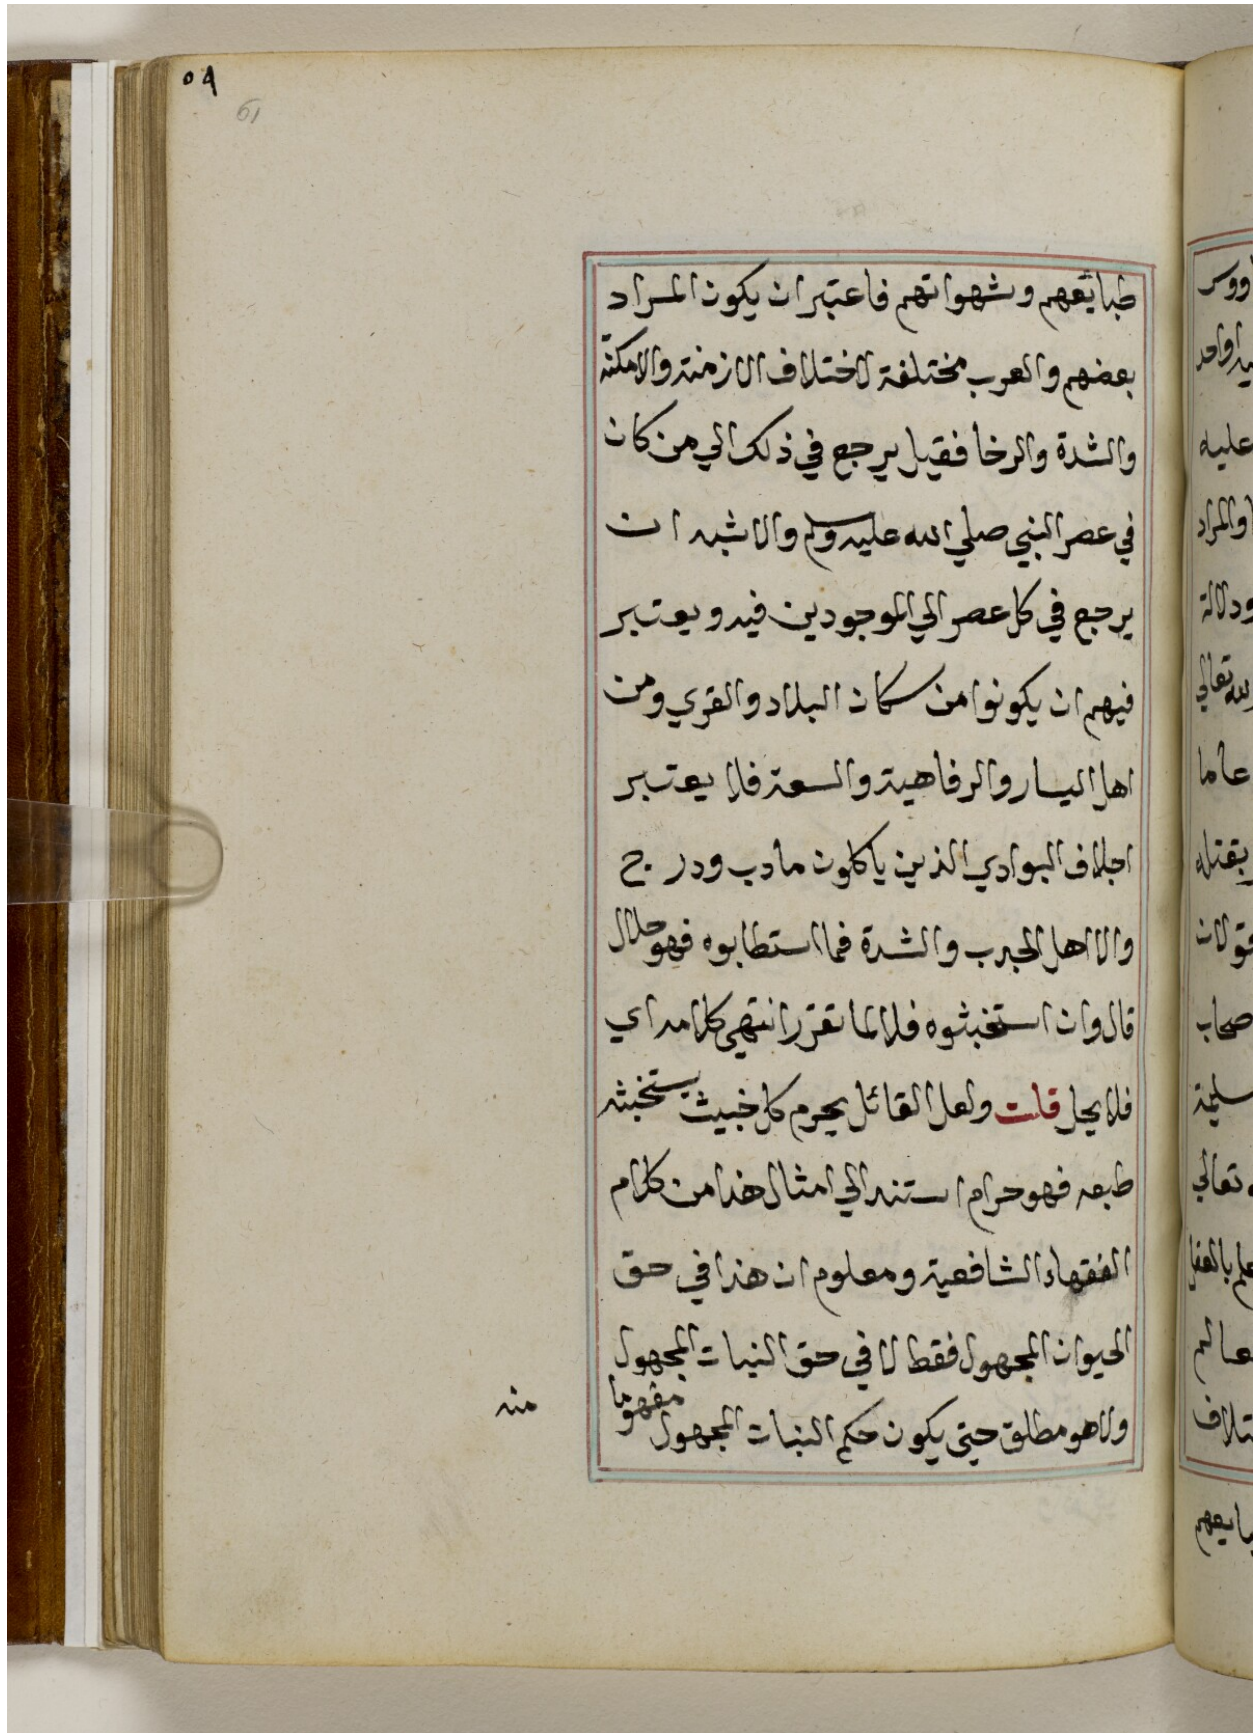 ٥٩
61
طبايعهم وشهواتهم فاعتبر ان يكون المراد
بعضهم والعرب مختلفة لاختلاف الازمنة والامكنة
والشدة والرخا فقيل يرجع في ذلك الي من كان
في عصر النبي صلي الله عليه وسلم والاشبه ان
يرجع في كل عصر الي الموجودين فيه ويعتبر
فيهم ان يكونوا من سكان البلاد والقري ومن
اهل اليسار والرفاهية والسعة فلا يعتبر
اجلاف البوادي الذين ياكلون ما دب ودرج
والا اهل الجدب والشدة فما استطابوه فهو حلال
قال وان استخبثوه فلا لما تقرر انتهي كلامه اي
فلا يحل قلت ولعل القائل يحرم كل خبيث يستخبثه
طبعه فهو حرام استند الي امثال هذا من كلام
الفقهاء الشافعية ومعلوم ان هذا في حق
الحيوان المجهول فقط لا في حق النبات المجهول
ولا هو مطلق حتي يكون حكم النبات المجهول مفهوما
منه
اووس
عليه
والمراد
ودلالة
الله تعالي
عاما
بقتله
صحاب
سليمة
تعالي
بالعقل
تلاف
بايعهم